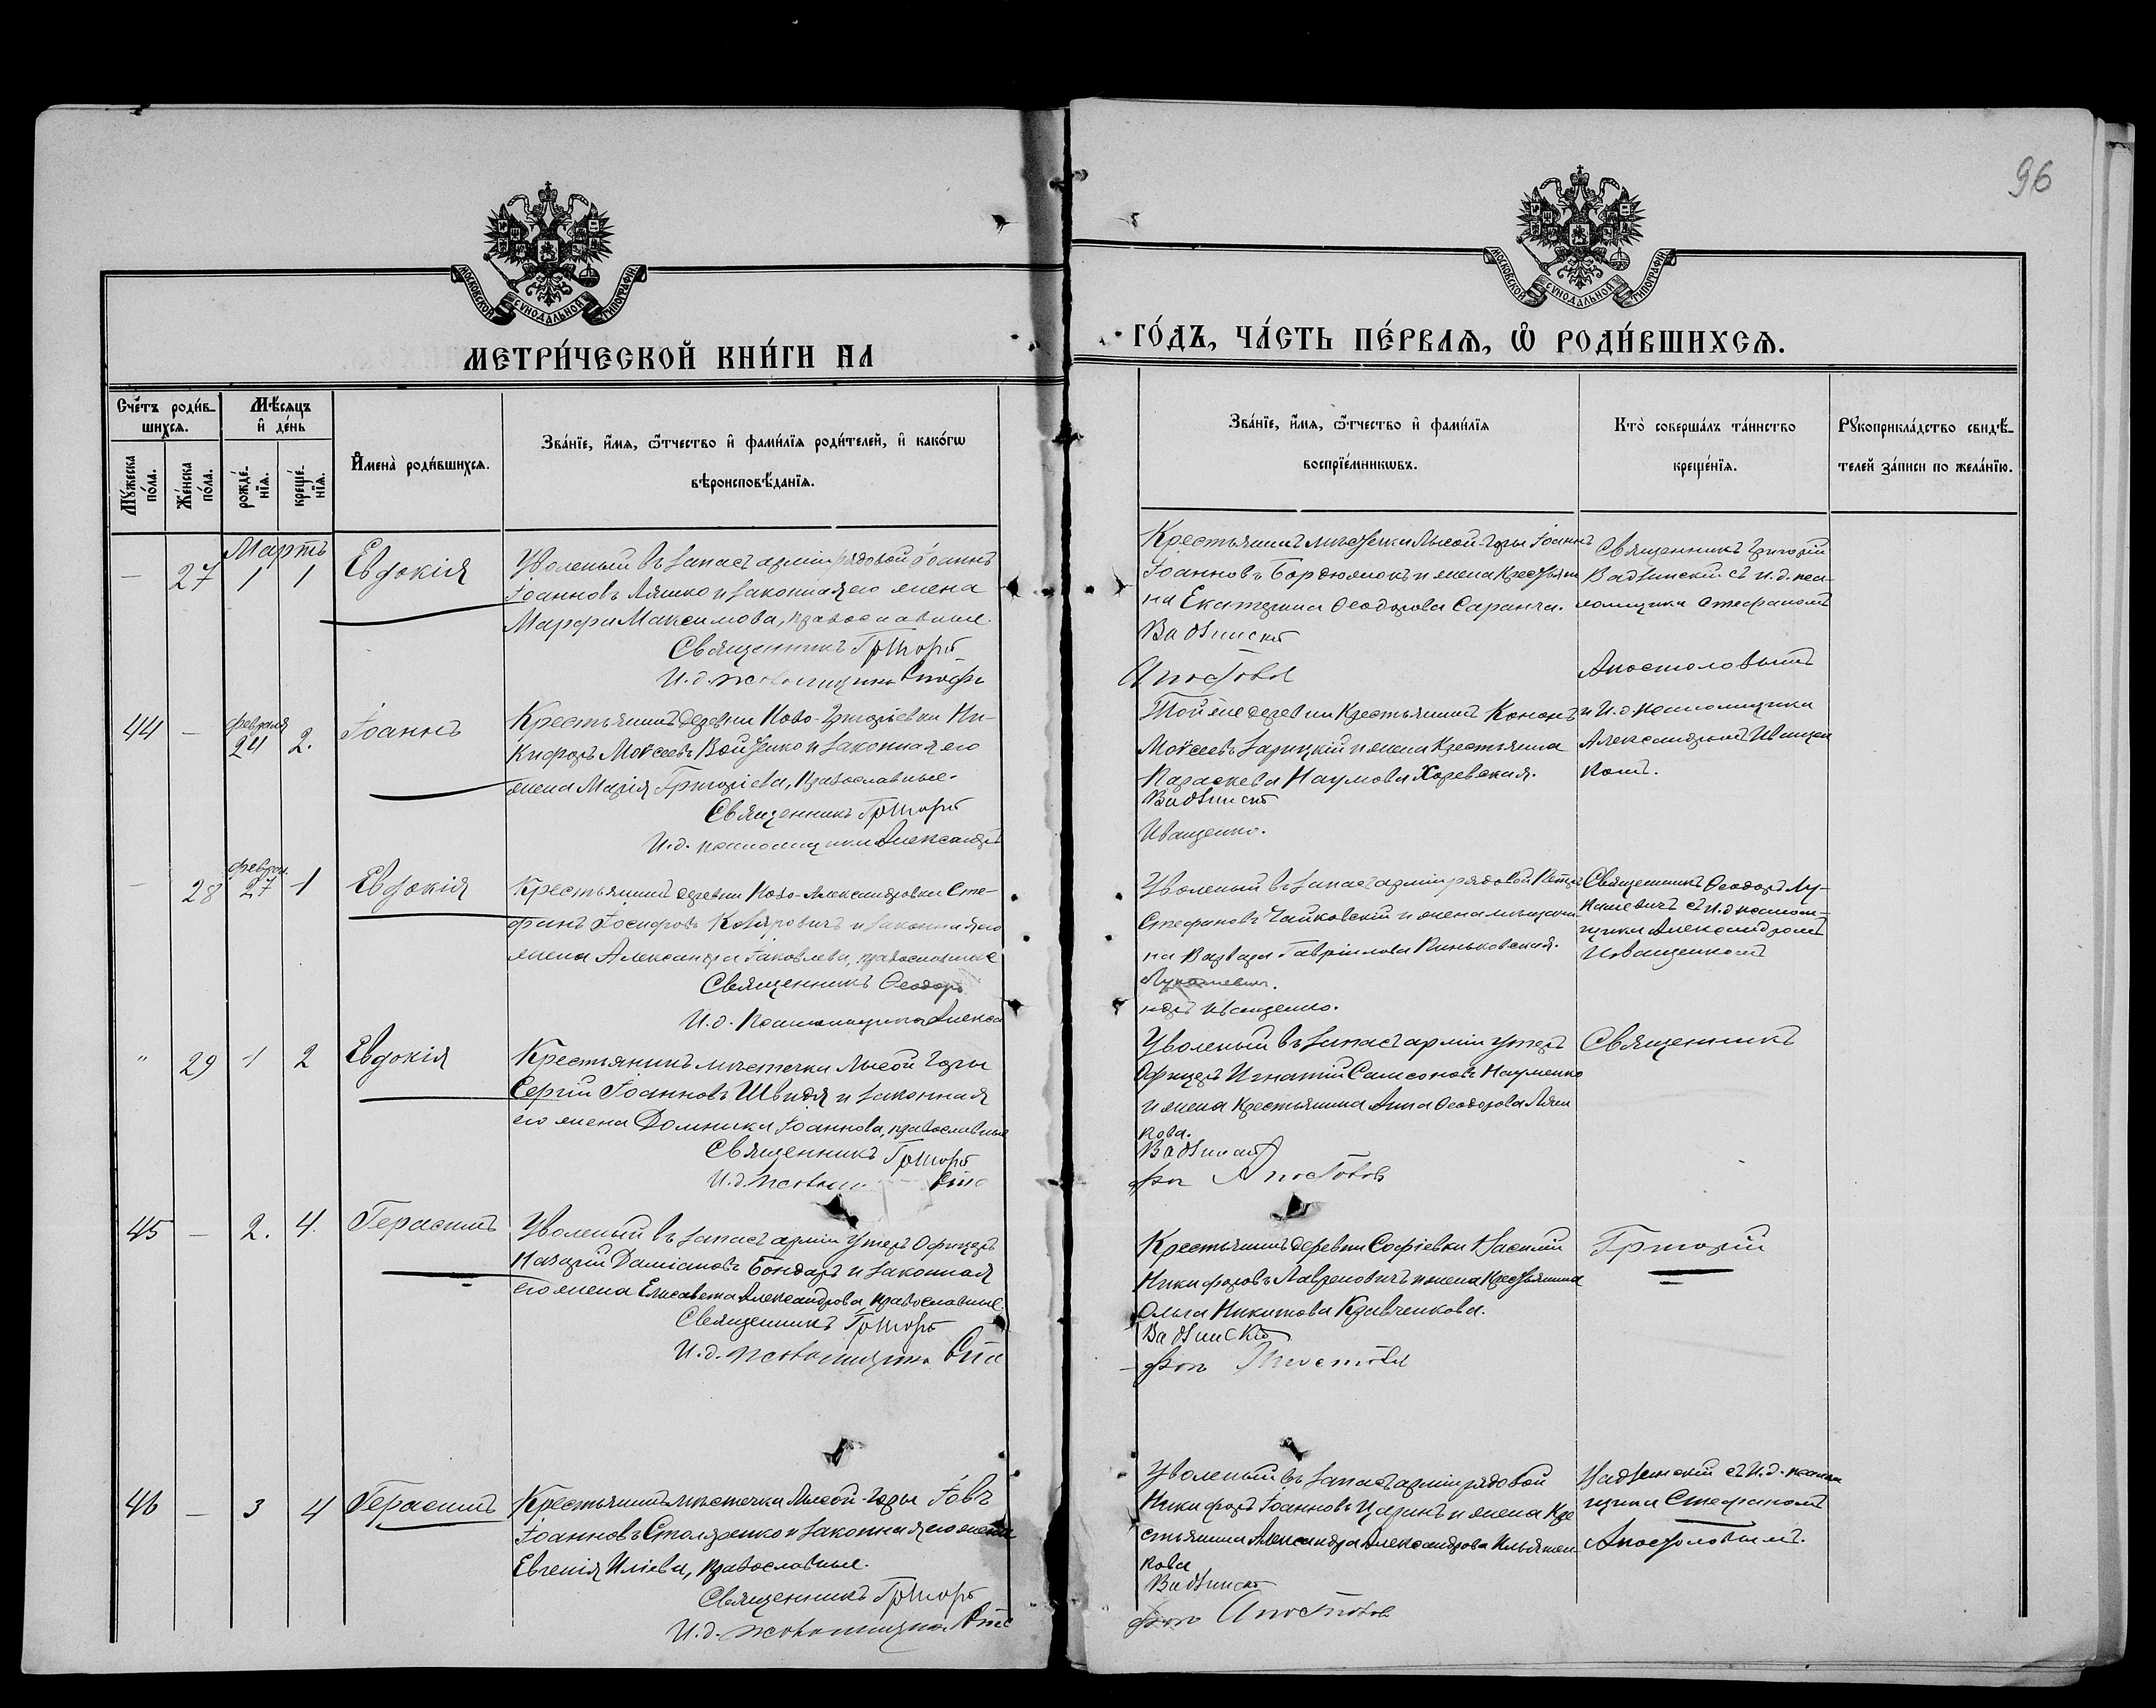 96
МОСКОВСКОЙ СѴНОДАЛЬНОЙ ТИПОГРАФІИ
МОСКОВСКОЙ СѴНОДАЛЬНОЙ ТИПОГРАФІИ
МЕТРИ́ЧЕСКОЙ КНИ́ГИ НА
ГО́ДЪ, ЧА́СТЬ ПЕ́РВАѦ, Ѡ РОДИ́ВШИХСѦ.
Сче́тъ роди́в-
шихсѧ.
Мꙋ́жеска по́ла.
Же́нска по́ла.
Мѣ́сѧцъ и де́нь
рожде́-нїѧ.
креще́-нїѧ.
Имена̀ роди́вшихсѧ.
Зва́нїе, и́мѧ, ѻ҆́тчество и фами́лїѧ роди́телей, и како́гѡ
вѣроисповѣ́данїѧ.
Зва́нїе, и́мѧ, ѻ҆́тчество и фами́лїѧ
воспрїе́мникѡвъ.
Кто̀ соверша́лъ та́инство
креще́нїѧ.
Рꙋкоприкла́дство свидѣ́-
телей за́писи по жела́нїю.
Мартъ
— 27 1 1 Евдокія
Уволеный въ запасъ арміи рядовой Іоаннъ
Іоанновъ Ляшко и законная его жена
Марфа Максимова, православные.
Священникъ Григорій
И.д. псаломщика Стефа
Крестьянинъ мѣстечка Лысой-Горы Іоаннъ
Іоанновъ Бордюжокъ и жена крестьяни
на Екатерина Ѳеодорова Саранча.
Вадзинскій
Апостолов
Священникъ Григорій
Вадзинскій съ и.д. пса-
ломщика Стефаномъ
Апостоловымъ
44 — февраля 24 2. Іоаннъ
Крестьянинъ деревни Ново-Григорьевки Ни-
кифоръ Моѵсеевъ Войтенко и законная его
жена Марія Григоріева, православные.
Священникъ Григорій
И.д. псаломщика Александръ
Той же деревни крестьянинъ Кононъ
Моѵсеевъ Зарицкій и жена крестьянина
Параскева Наумова Хоревская.
Вадзинскій
Иващенко.
и И.д. псаломщика
Александромъ Иващен
комъ.
— 28 феврал. 27 1 Евдокія
Крестьянинъ деревни Ново-Александровки Сте-
фанъ Іосифовъ и законная его
жена Александра Іаковлева, православные
Священникъ Ѳеодоръ
И.д. Псаломщика Алекса
Уволеный въ запасъ арміи рядовой Петръ
Стефановъ Чайковскій и жена мѣщани-
на Варвара Гавріилова Виньковская.
Лукашевич.
ндръ Иващенко.
Священникъ Ѳеодоръ Лу-
кашевичъ съ И.д. псалом-
щика Александромъ
Иващенкомъ
" 29 1 2 Евдокія
Крестьянинъ мѣстечка Лысой Горы
Сергій Іоанновъ Швидя и законная
его жена Домника Іоаннова, православные
Священникъ Григорій
И.д. псалом. Сте
Уволеный въ запасъ арміи унтеръ
Офицеръ Игнатій Самсоновъ Науменко
и жена крестьянина Анна Ѳеодорова
кова.
Вадзинскій
фан Апостолов
Священникъ
45 — 2. 4. Герасимъ
Уволеный въ запасъ арміи унтеръ Офицеръ
Назарій Даміановъ Бондарь и законная
его жена Елисавета Александрова, православные.
Священникъ Григорій
И.д. псаломщика Сте
Крестьянинъ деревни Софіевки Василій
Никифоровъ Лавреновичъ и жена крестьянина
Ольга Никитова Кравченкова.
Вадзинскій
фан Апостолов
Григорій
46 — 3 4 Герасимъ
Крестьянинъ мѣстечка Лысой-Горы Іовъ
Іоанновъ Столяренко и законная его жена
Евгенія Иліева, православные.
Священникъ Григорій
И.д. псаломщика Сте
Уволеный въ запасъ арміи рядовой
Никифоръ Іоанновъ Царинъ и жена кре
стьянина Александра Александрова Ильяшен-
кова
Вадзинскій
фан Апостолов
Вадзинскій съ И.д. псалом
щика Стефаномъ
Апостоловымъ.